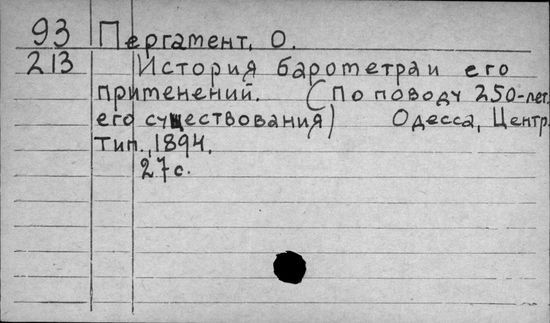 93 Пергамент, О.
213 История барометра и его
применений. (По поводу 250-лет.
его существования) Одесса, Центр.
Тип., 1894.
27 с.